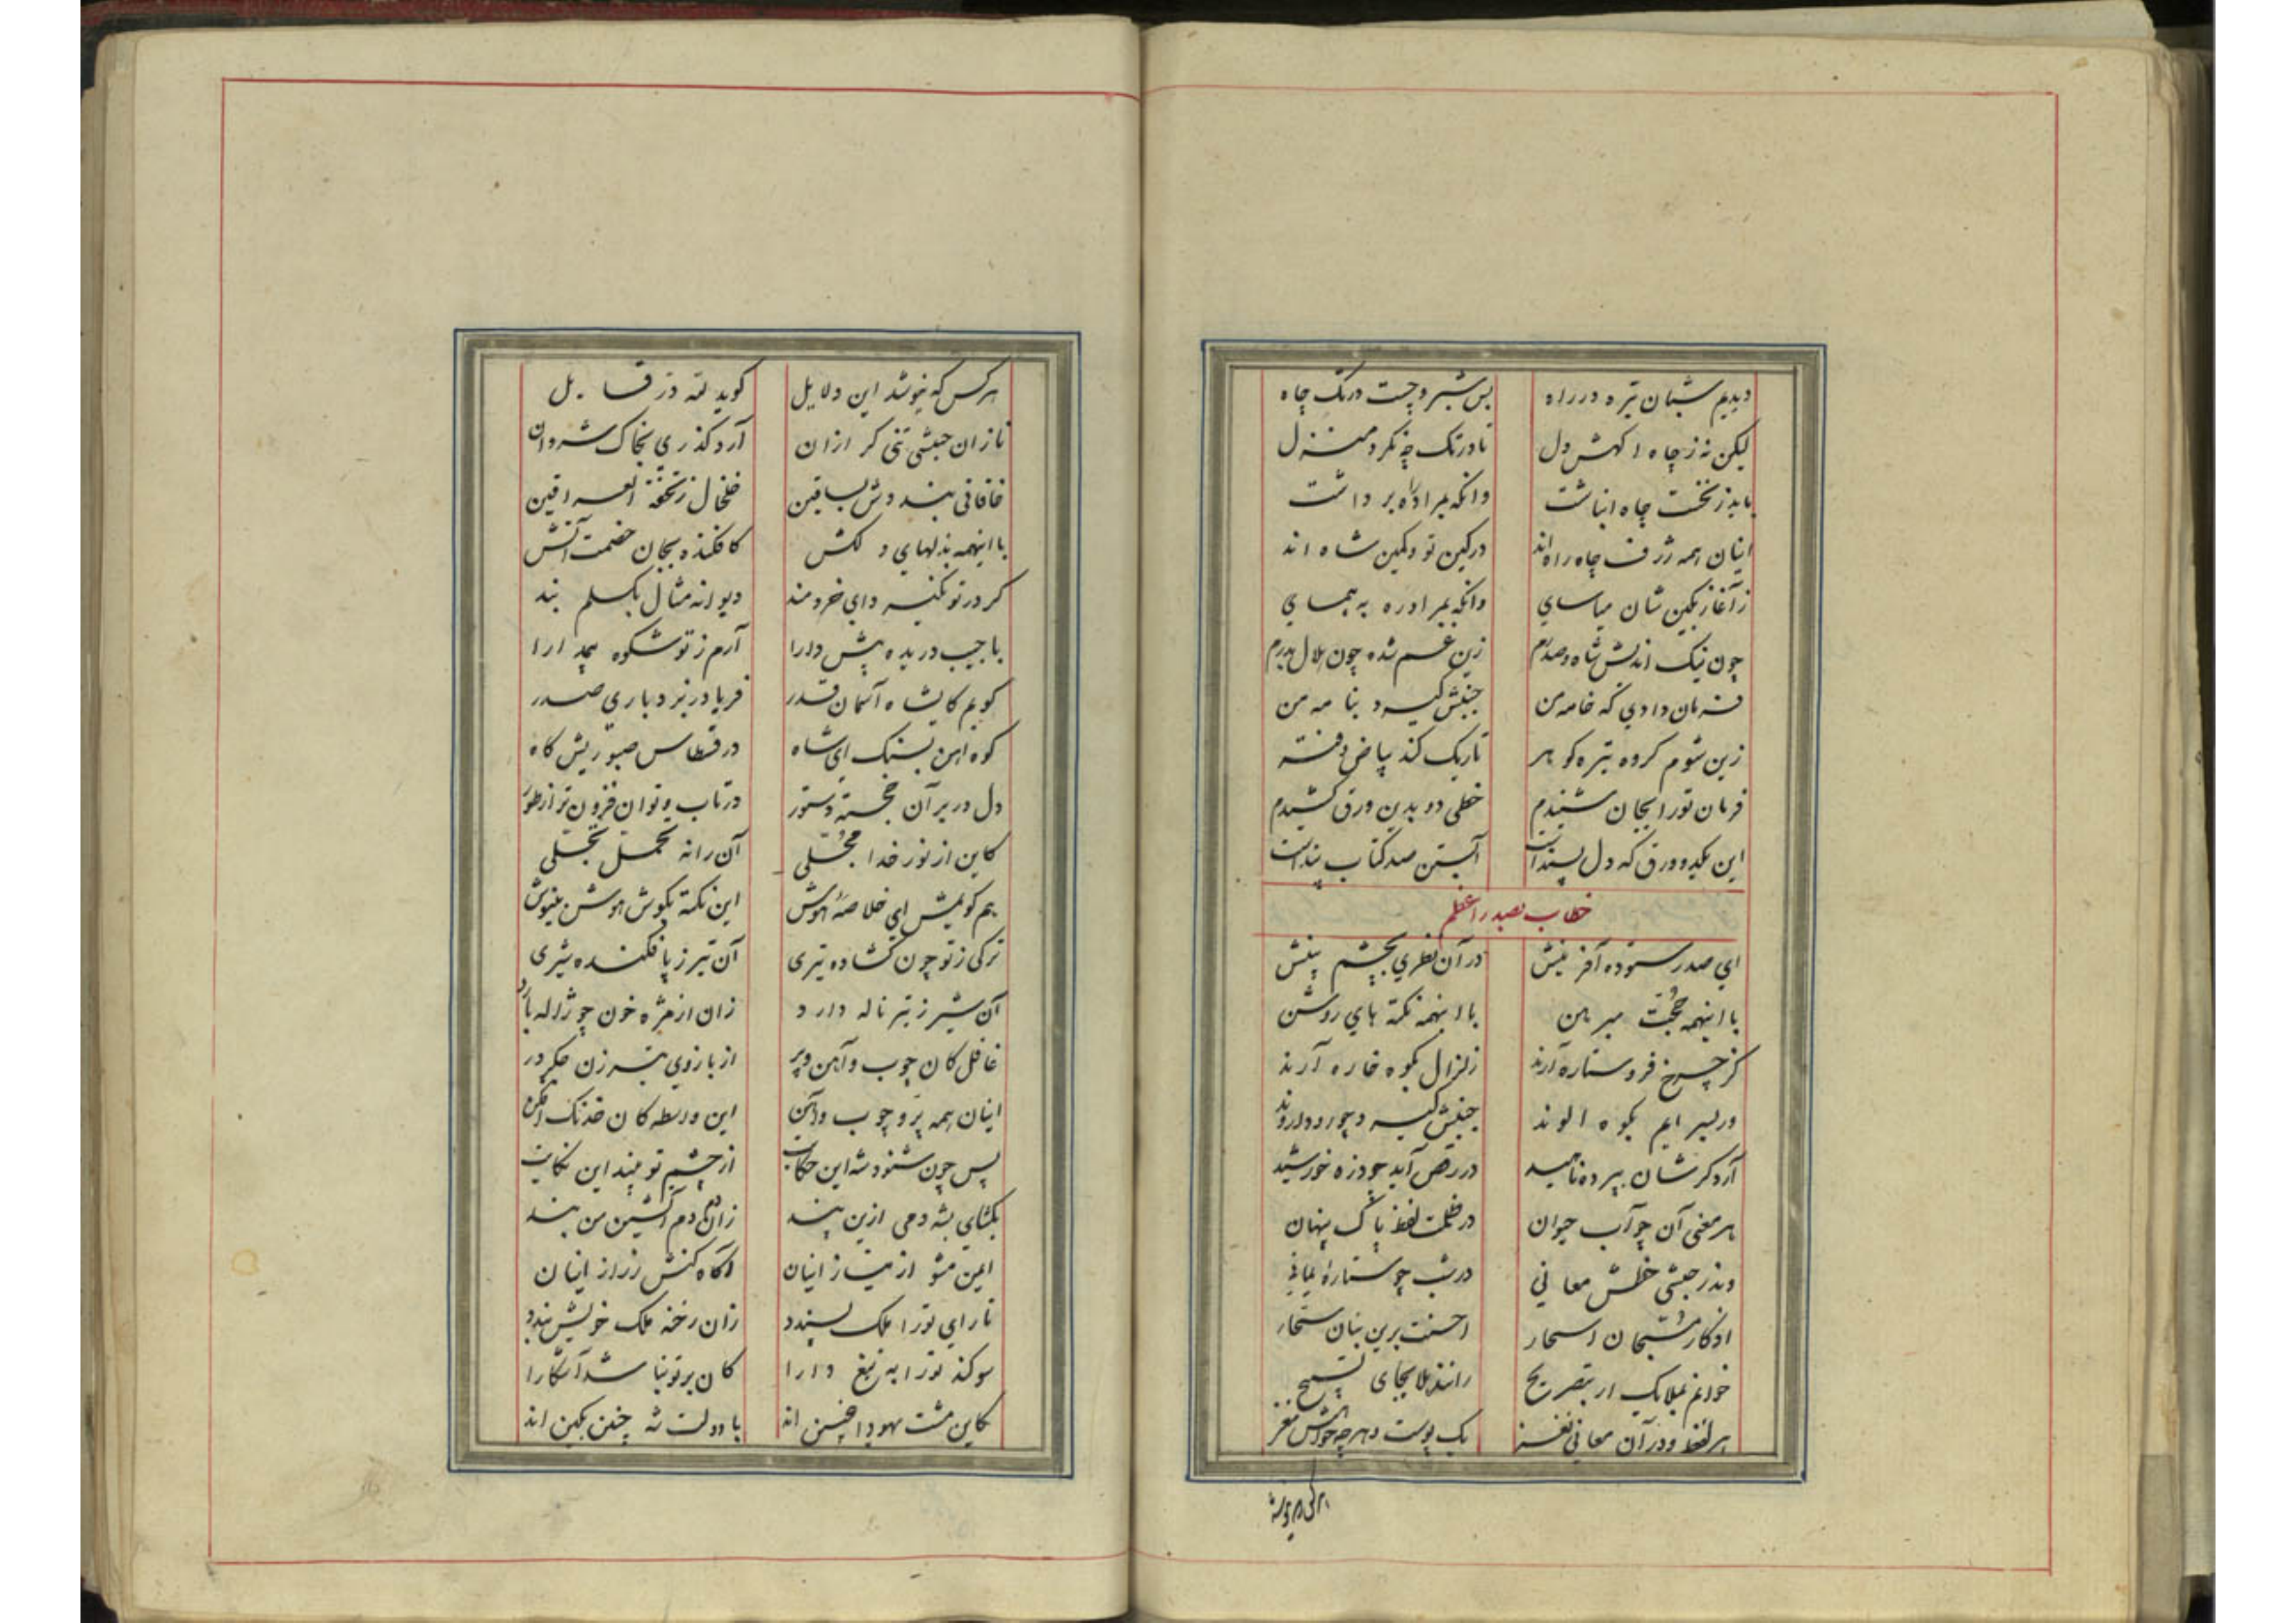 دیدیم شبان تیره در راه بس شیر و چست در تک چاه
لیکن نه ز چاه اکهش دل تا در تک چه نکرد منزل
باید ز نخست چاه انباشت وانکه بمراد راه برداشت
اینان همه ژرف چاه راه اند در کین تو و کمین شاه اند
ز آغاز بکین شان میاسای وانکه بمراد ره به پیمای
چون نیک اندیش شاه و صدرم زین غم شده چون هلال بدرم
فرمان دادی که خامه من جنبش گیرد بنامه من
زین شوم گروه تیره گوهر تاریک کند بیاض دفتر
فرمان تو را بجان شنیدم خطی دو بدین ورق کشیدم
این یکدو ورق که دل پسند است آبستن صد کتاب پند است
خطاب بصدر اعظم
ای صدر ستوده آفرینش در آن نظری بچشم بینش
با اینهمه حجّت مبرهن با اینهمه نکته های روشن
کز چرخ فرو ستاره آرند زلزال بکوه خاره آرند
ور بسرایم بکوه الوند جنبش گیرد چو رود اروند
آرد گرشان بپرده ناهید در رقص آید چو ذره خورشید
هر معنی آن چو آب حیوان در ظلمت لفظ پاک پنهان
وندر حبشی خطش معانی در شب چو ستارهٔ یمانی
اذکار مسبّحان اسحار احسنت برین بنان سحّار
خوانم بملایک ار بتصریح رانند بلا بجای تسبیح
هر لفظ و در آن معانی نغز یک پوست و هرچه خواهیش مغز
هرکس که نیوشد این دلایل گوید لله در قایل
تا زان حبشی تنی گر ازان آرد گذری بخاک شروان
خاقانی بیند و ببساقین خلخال ز تحفة العراقین
با اینهمه بذلهای دلکش کافکنده بجان خصمت آتش
گر در تو نگیرد ای خردمند دیوانه مثال بکسلم بند
با جیب دریده پیش دارا آرم ز تو شکوه بیمدارا
گویم کایشاه آسمان قدر فریاد ز بردباری صدر
کوه احد بسنگ ای شاه در قسطاس صبوریش کاه
دل در بر آن خجسته دستور در تاب و توان فزون تر از طور
کاین از نور خدا مجلّی آن را نه تحمّل تجلّی
هم گویمش ای خلاصهٔ هوش این نکته بگوش هوش بنیوش
ترکی ز تو چون گشاده تیری آن تیر ز پا فکنده شیری
آن شیر ز تیر ناله دارد زان از مژه خون چو ژاله بارد
غافل کان چوب و آهن و پر از بازوی تیرزن جگر در
اینان همه پرّ و چوب و آهن این واسطه کان خدنگ افکن
پس چون شنود شه این حکایت از چشم تو بیند این نکایت
بگشای بشه دمی ازین پند زان دم آتشین من بند
ایمن مشو از نیاز اینان آگاه کنش ز راز اینان
تا رای تو را ملک پسندد زان رخنه ملک خویش بندد
سوگند تو را به تیغ دارا کان بر تو نباشد آشکارا
کاین مشت یهود اهنین اند با دولت شه چنین بکین اند